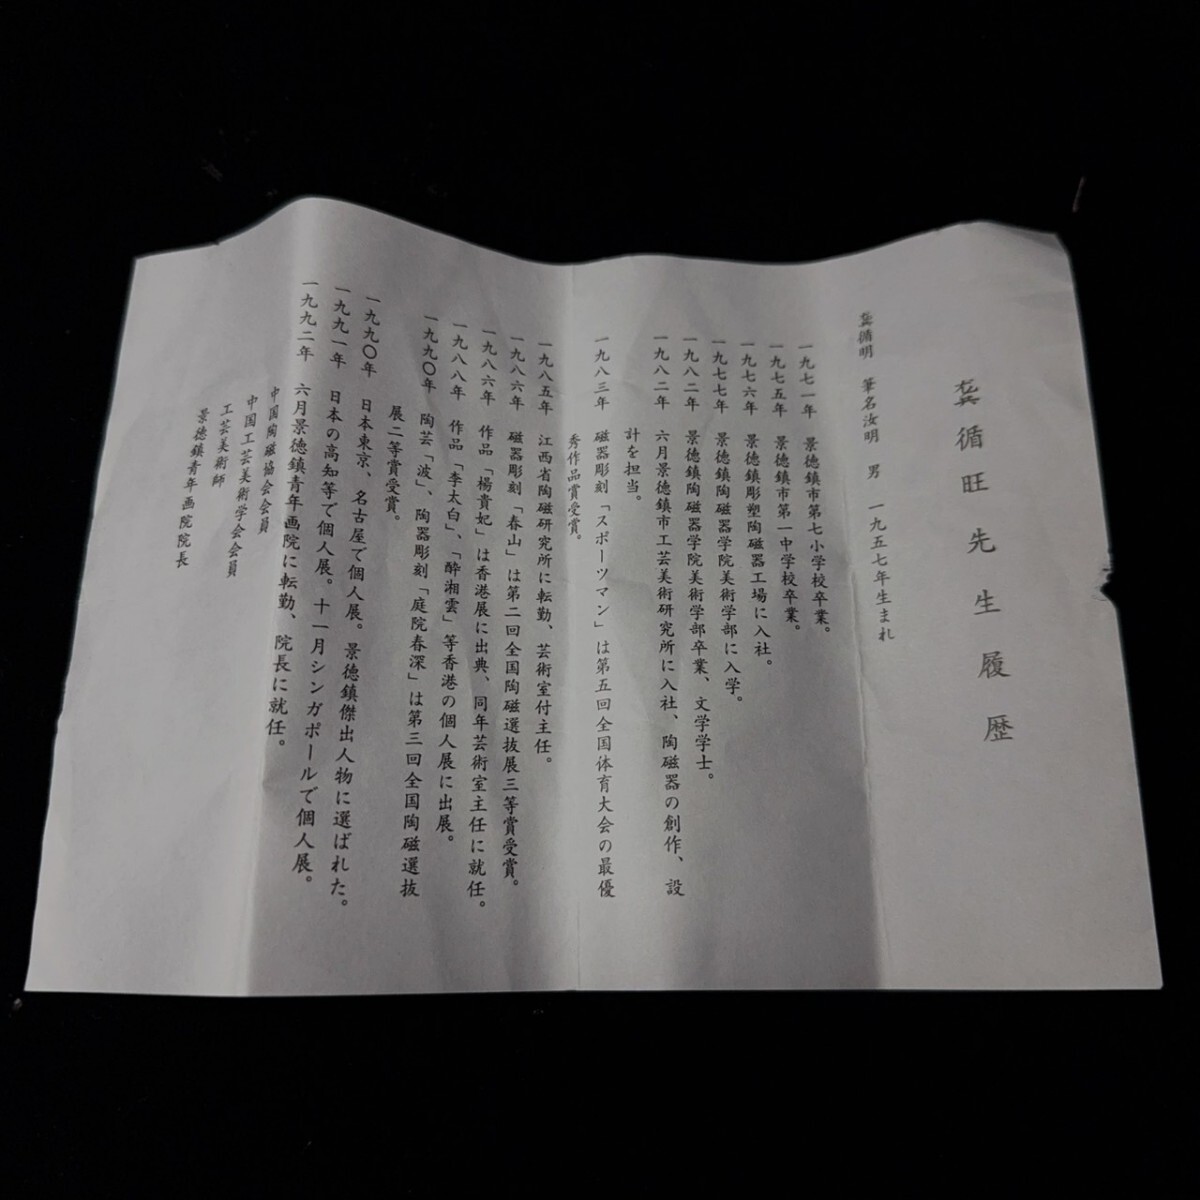 龔循旺先生履歴
龔循明　筆名汝明　男　一九五七年生まれ
一九七一年　景徳鎮市第七小学校卒業。
一九七五年　景徳鎮市第一中学校卒業。
一九七六年　景徳鎮彫塑陶磁器工場に入社。
一九七七年　景徳鎮陶磁器学院美術学部に入学。
一九八二年　景徳鎮陶磁器学院美術学部卒業、文学学士。
一九八二年　六月景徳鎮市工芸美術研究所に入社、陶磁器の創作、設
計を担当。
一九八三年　磁器彫刻「スポーツマン」は第五回全国体育大会の最優
秀作品賞受賞。
一九八五年　江西省陶磁研究所に転勤、芸術室付主任。
一九八六年　磁器彫刻「春山」は第二回全国陶磁選抜展三等賞受賞。
一九八六年　作品「楊貴妃」は香港展に出典、同年芸術室主任に就任。
一九八八年　作品「李太白」、「酔湘雲」等香港の個人展に出展。
一九九〇年　陶芸「波」、陶器彫刻「庭院春深」は第三回全国陶磁選抜
展二等賞受賞。
一九九〇年　日本東京、名古屋で個人展。景徳鎮傑出人物に選ばれた。
一九九一年　日本の高知等で個人展。十一月シンガポールで個人展。
一九九二年　六月景徳鎮青年画院に転勤、院長に就任。
中国陶磁協会会員
中国工芸美術学会会員
工芸美術師
景徳鎮青年画院院長